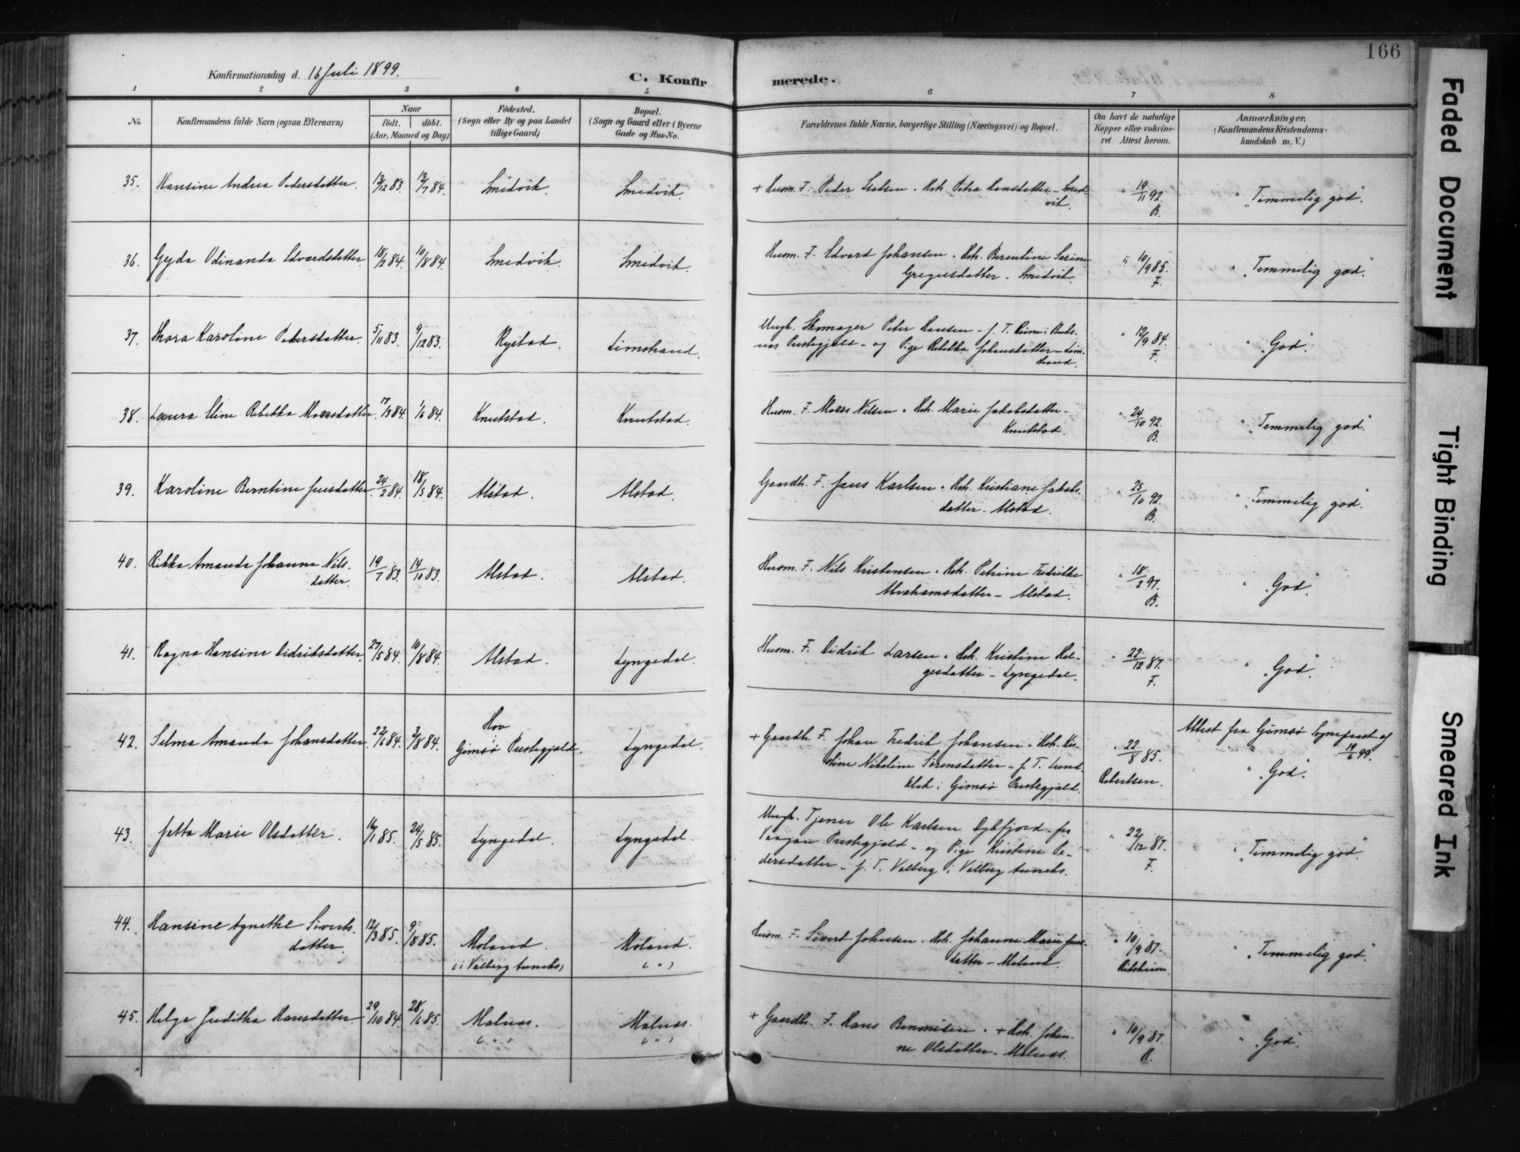 166
Konfirmationsdag d. 16 Juli 1899.
C. Konfirmerede.
1 2 3 4 5 6 7 8
No.
Konfirmandens fulde Navn (ogsaa Efternavn)
Naar
født. døbt.
(Aar, Maaned og Dag)
Fødested.
(Sogn eller By og paa Landet
tillige Gaard)
Bopæl.
(Sogn og Gaard eller i Byerne
Gade og Hus-No.
Forældrenes fulde Navne, borgerlige Stilling (Næringsvei) og Bopæl.
Om havt de naturlige
Kopper eller vakcine-
ret Attest herom.
Anmærkninger.
(Konfirmandens Kristendoms-
kundskab m. V.)
35. Hansine Andrea Pedersdatter. 84. Smedvik. Smedvik.
+ Husm. F. Peder . Kok. Petra Hansdatter - Smed-
vik.
19/11 92. B. "Temmelig god."
36. Gyda Odinanda Edvardsdatter 84. 10/8 84. Smedvik. Smedvik.
Husm. F. Edvard Johansen . Kok. Berentine
Gregersdatter - Smedvik.
10/9 85. F. "Temmelig god."
37. Thora Karoline Petersdatter 5/11 83. 9/12 83. Rystad. Limstrand.
Ungk. Skomager Peter Hansen - f. T.
Prestegjeld - og Pige Rebekka Johansdatter - Lim-
strand.
12/9 84. F. "God."
38. Laura Eline Rebekka 84. 84. Knutstad. Knutstad.
Husm. F. Nilsen . Kok. Marie Jakobsdatter -
Knutstad.
24/10 92. B. "Temmelig god."
39. Karoline Berntine Jensdatter 84. 18/5 84. Alstad. Alstad.
Gaardb. F. Jens Karlsen . Kok. Kristiane Jakobs-
datter - Alstad.
10 92. B. "Temmelig god."
40. Rikka Amanda Johanna Nils-
datter. 19/7 83. 14/10 83. Alstad. Alstad.
Husm. F. Nils Kristensen . Kok. Petrine Fredrikke
Abrahamsdatter - Alstad.
18/2 97. B. "God."
41. Ragna Hansine Didriksdatter 27/5 84. 10/8 84. Alstad. Lyngedal.
Husm. F. Didrik Larsen . Kok. Kristine Hel-
gesdatter - Lyngedal.
22/12 87. F. "God."
42. Selma Amanda Johansdatter 22/6 84. 8 84. Hov
Gimsø Prestegjeld. Lyngedal.
+ Gaardb. F. Johan Fredrik Johansen . Kok. Ka-
roline Nikoline Sørensdatter - f. T. Sund-
klak i Gimsø Prestegjeld.
22/8 85.
Robertsen.
Attest fra Gimsø Sogneprest af
99. "God."
43. Jetta Marie Olsdatter. 85. 24/5 85. Lyngedal. Lyngedal.
Ungk. Tjener Ole Karlsen - fra
Vaagan Prestegjeld - og Pige Kristine Pe-
dersdatter - f. T. Valberg i Valberg Anneks.
22/12 87. F. "Temmelig god."
44. Hansine Agnethe Siverts-
datter. 12/3 85. 9/8 85. Moland.
(i Valberg Anneks) Moland.
( " )
Husm. F. Sivert Johnsen . Kok. Johanne Marie
datter - Moland.
10/9 87. "Temmelig god."
45. Helga Juditha Hansdatter 29/10 84. 28/6 85. Molnes.
( " ) Molnes.
( " )
+ Gaardb. F. Hans . + Kok. Johan-
ne Olsdatter - Molnes.
10/9 87. R. "God."
Faded Document
Tight Binding
Smeared Ink